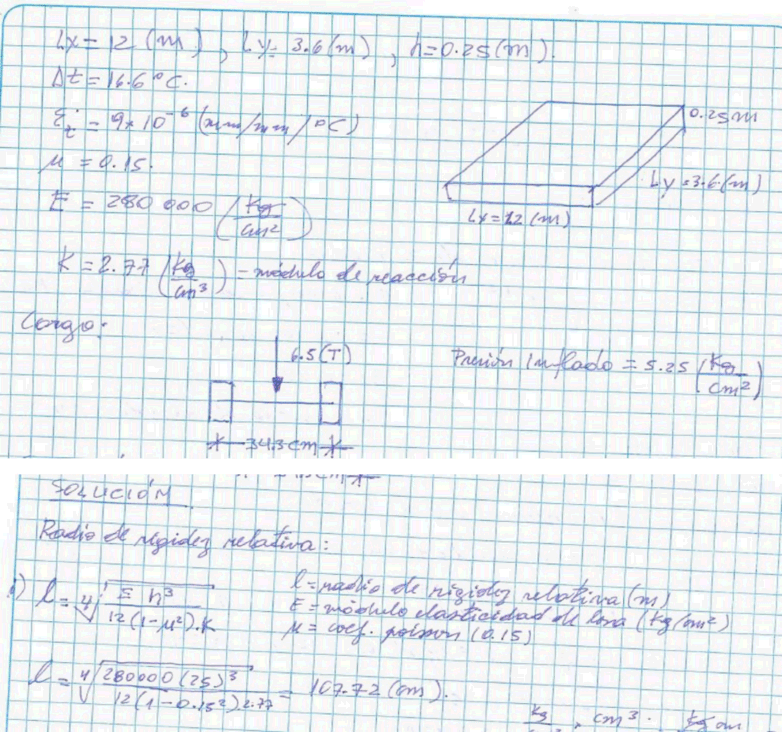 Lx = 12 (m), Ly = 3.6 (m), h = 0.25 (m).
Δt = 16.6 °C.
εt = 9x10⁻⁶ (mm/mm/°C)
μ = 0.15.
E = 280 000 (Kg/cm²)
0.25m
Ly = 3.6 (m)
Lx = 12 (m)
K = 2.77 (Kg/cm³) = módulo de reacción
Carga:
6.5 (T)
34.3 cm
Presión Inflado = 5.25 (Kg/cm²)
SOLUCIÓN
Radio de rigidez relativa:
l = ⁴√(E h³ / 12(1-μ²).K)
l = radio de rigidez relativa (m)
E = módulo elasticidad de losa (kg/cm²)
μ = coef. poisson (0.15)
l = ⁴√(280000 (25)³ / 12(1-0.15²) 2.77) = 107.72 (cm).
cm³